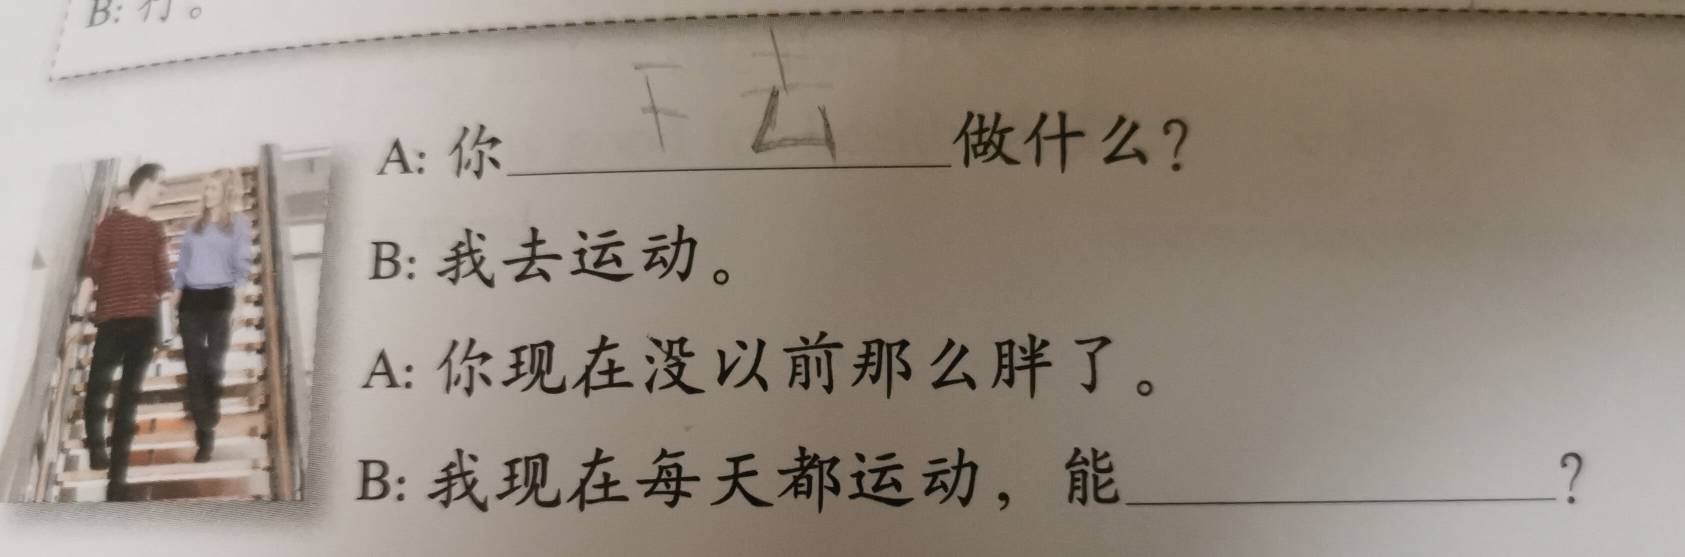 B: 行。
A: 你 下去 做什么？
B: 我去运动。
A: 你现在没以前那么胖了。
B: 我现在每天都运动，能______？